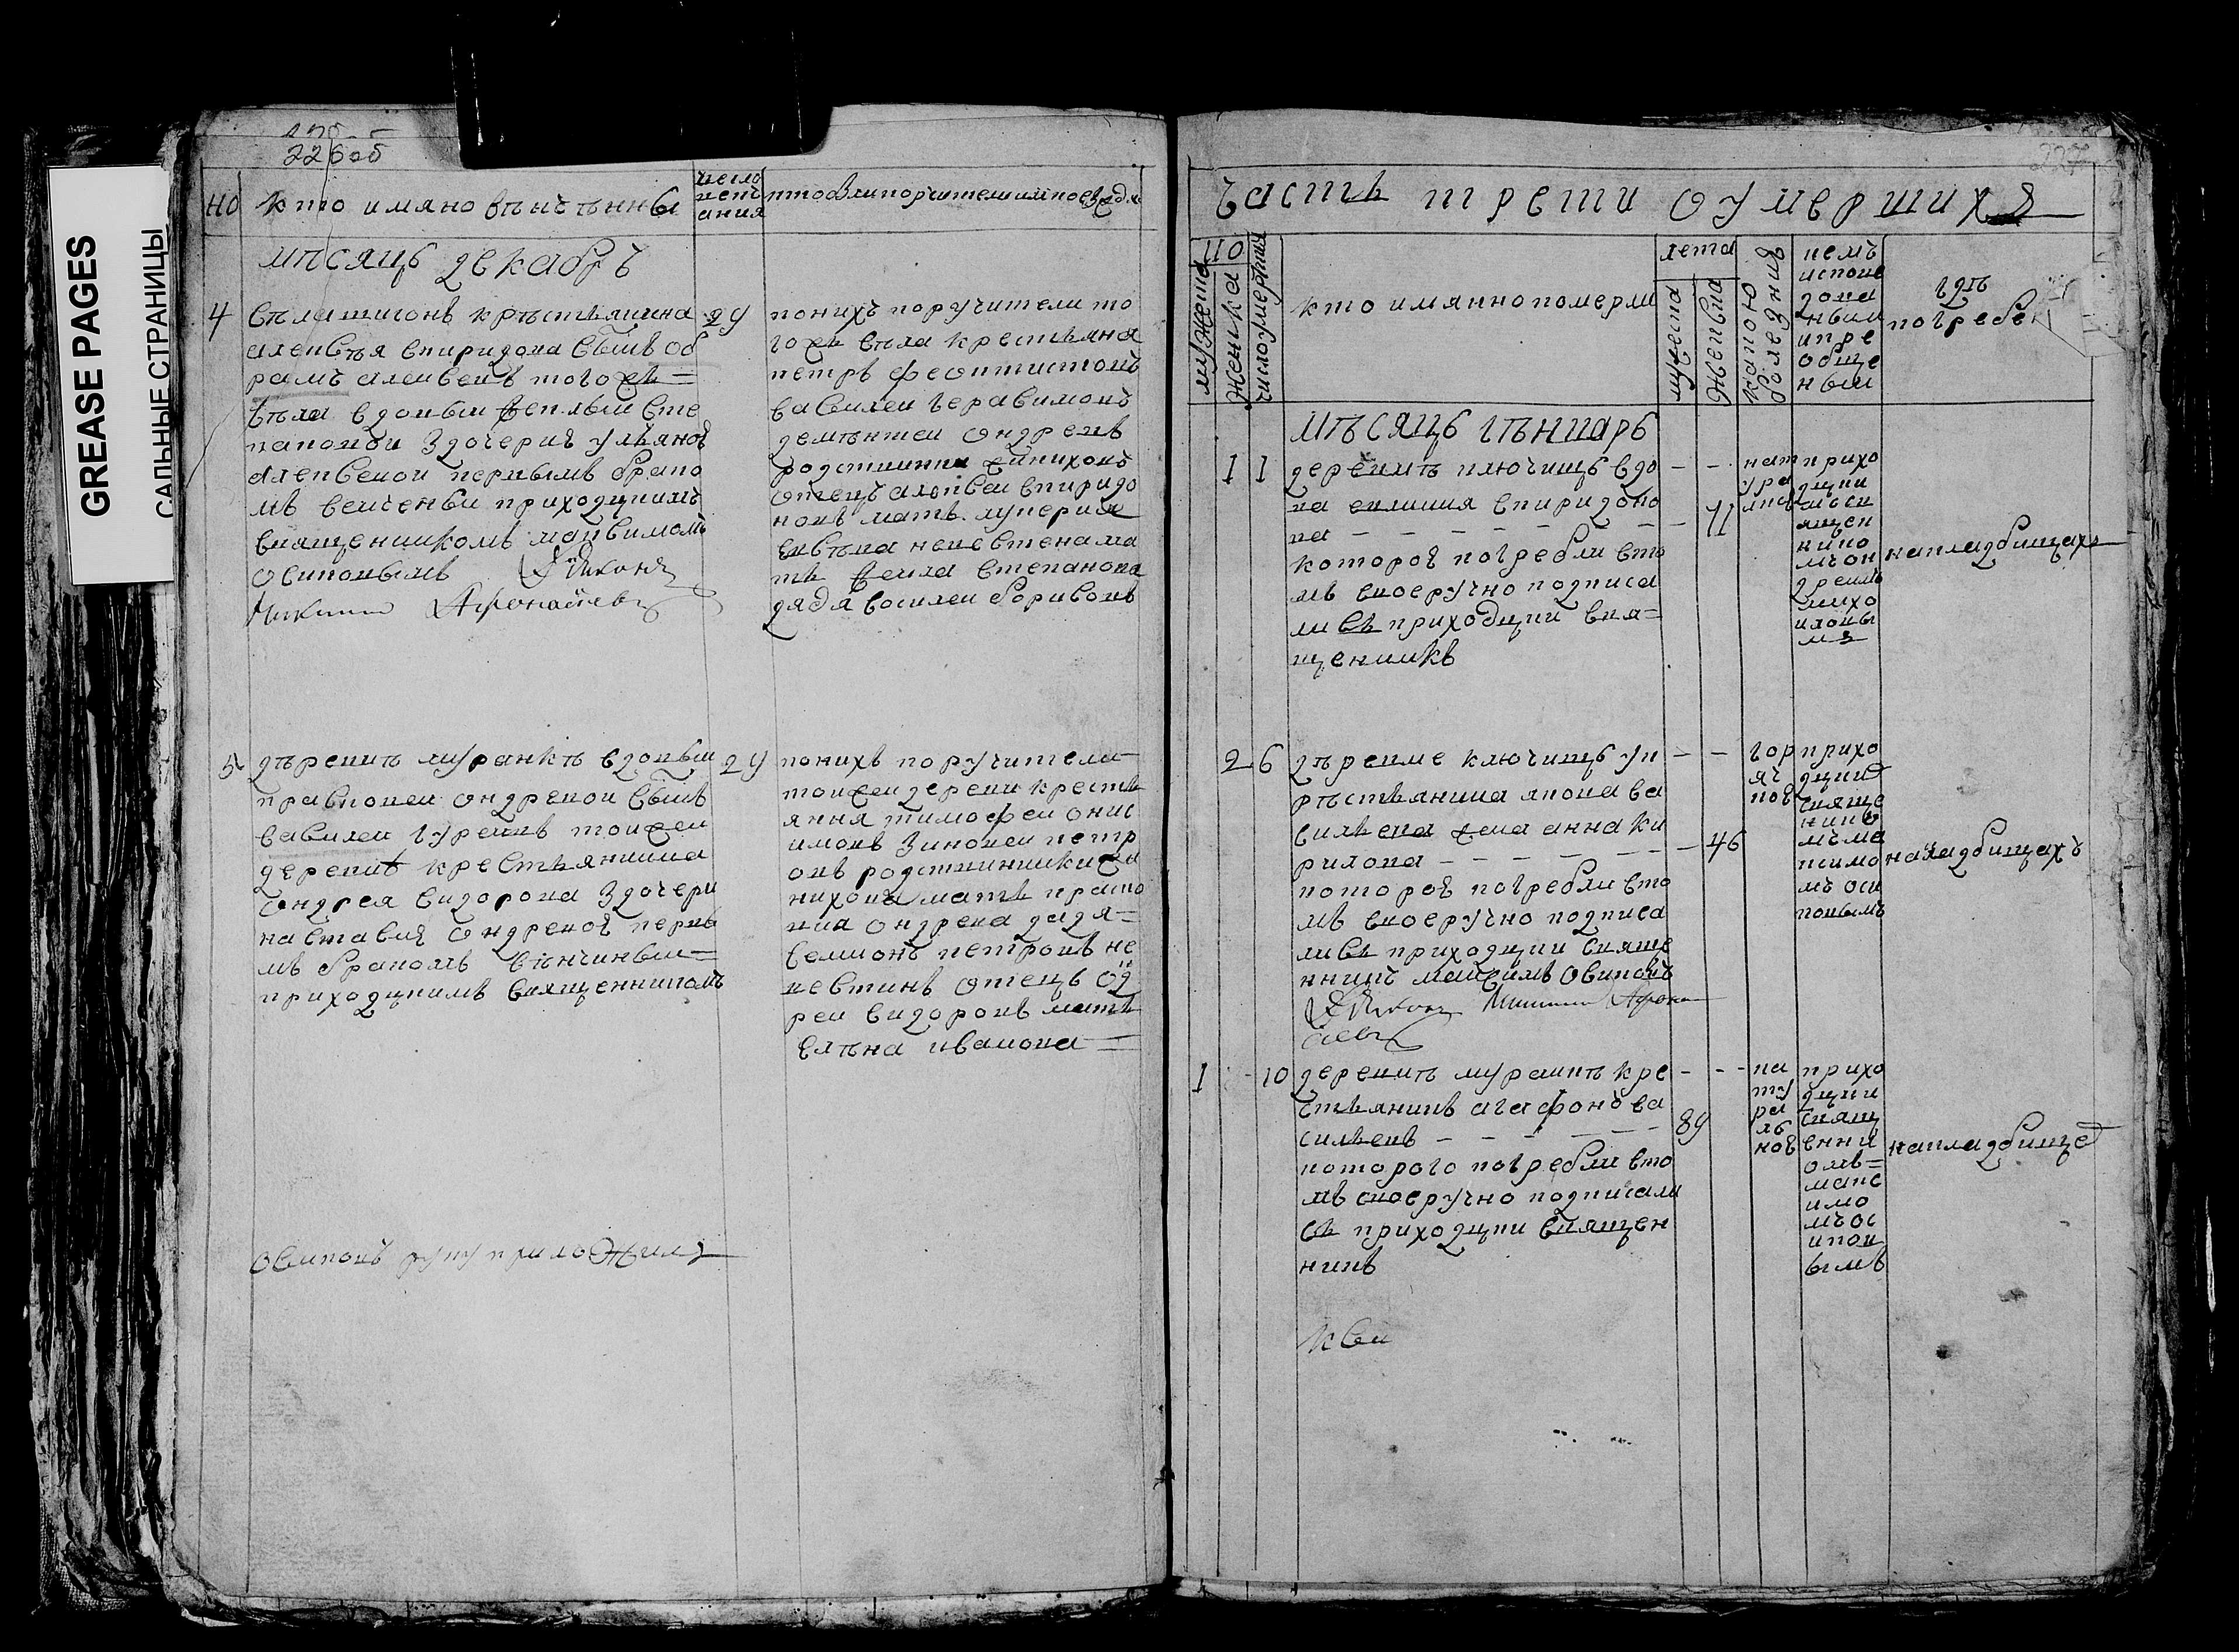 GREASE PAGES
САЛЬНЫЕ СТРАНИЦЫ
226об
но
кто имяно вѣнчтъннбı
число
венч
ания
кто были поручители или поезжаня
мѣсяцъ декабръ
4
села шигонъ крѣстьянина
алексѣя спиридона сынъ аб
рамъ алексеевъ того же =
села вдовыи феклыи сте
пановои з дочерию ульяною
алексеевои первымъ брако
мъ венченъı приходцкимъ
священникомъ максимомъ
осиповымъ Дьяконъ
Никита Афонасьевъ
29
по нихъ поручители то
го же села крестьяна
петръ феоктистовъ
василеи герасимовъ
дементеи ондреевъ
родственники жениховъ
отецъ алексеи спиридо
новъ мать лукерия
невестена ма
ть фекла степанова
дядя василеи борисовъ
5
дѣревнѣ муранкѣ вдовыи
прасковеи ондревои сынъ
василеи гурѣевъ тоижеи
деревнѣ крестьянина
ондрея сидорова з дочери
настасию ондревою первы
мъ бракомъ вѣнчиныи =
приходцкимъ священникомъ
29
по нихъ поручители
тоижеи деревни кресть
яння тимофеи онис
имовъ зиновеи петр
овъ родственники же
нихова мать праско
вия ондрева дядя =
семионъ петровъ не
вестинъ отецъ од
реи сидоровъ мать
елѣна иванова =
осиповъ руку приложилъ
227
часть трети о умершихъ
но
мужеска
женска
число умертвия
кто имянно померли
лета
мужеска
женска
какою болезнию
кемъ
испове
дова
ныи
и прѣ
обще
ныи
гдѣ
погребен
мѣсяцъ гѣнварь
1
1
деревнѣ ключищъ вдо
ва спиридоно
ва – – – – –
которою погребли вто
мъ своеручно подписа
лись приходцки свя =
щенникъ
71
нат
ура
лною
прихо
дцки
мъ св
ящен
нико
мъ
на кладбищахъ
2
6
дѣревне ключищъ ув
рѣстьянина якова ва
сильева жена анна ки
рилова – – – – –
которою погребли вто
мъ своеручно подписа
лись приходцки свяще
нникъ максимъ осиповъ
Дьяконъ Никита Афона
сьевъ
46
гор
яч
кою
прихо
дцки
свяще
нико
мъ ма
ксимо
мъ оси
повымъ
на кладбищахъ
1
10
деревнѣ муранкѣ кре
стьянинъ агафонъ ва
сильевъ – – – – –
которого погребли вто
мъ своеручно подписали
сь приходцки священ
никъ
89
на
ту
ра
ль
ною
прихо
дцки
свящ
енник
омъ =
макс
имо
мъ ос
ипов
ымъ
на кладбище
к сеи